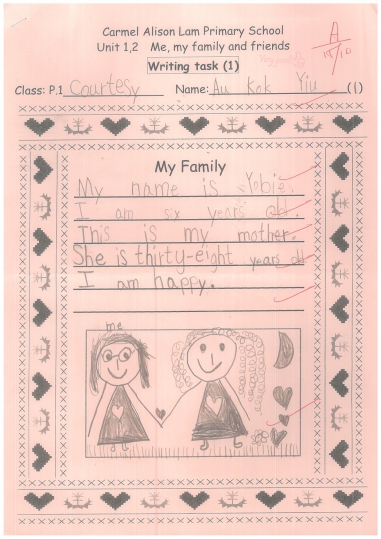 Carmel Alison Lam Primary School
Unit 1,2 Me, my family and friends
Writing task (1)
A
Class: P.1 Courtesy Name: Au Kok Yiu (1)
My Family
My name is Yobie.
I am six years old.
This is my mother.
She is thirty-eight years old
I am happy.
me